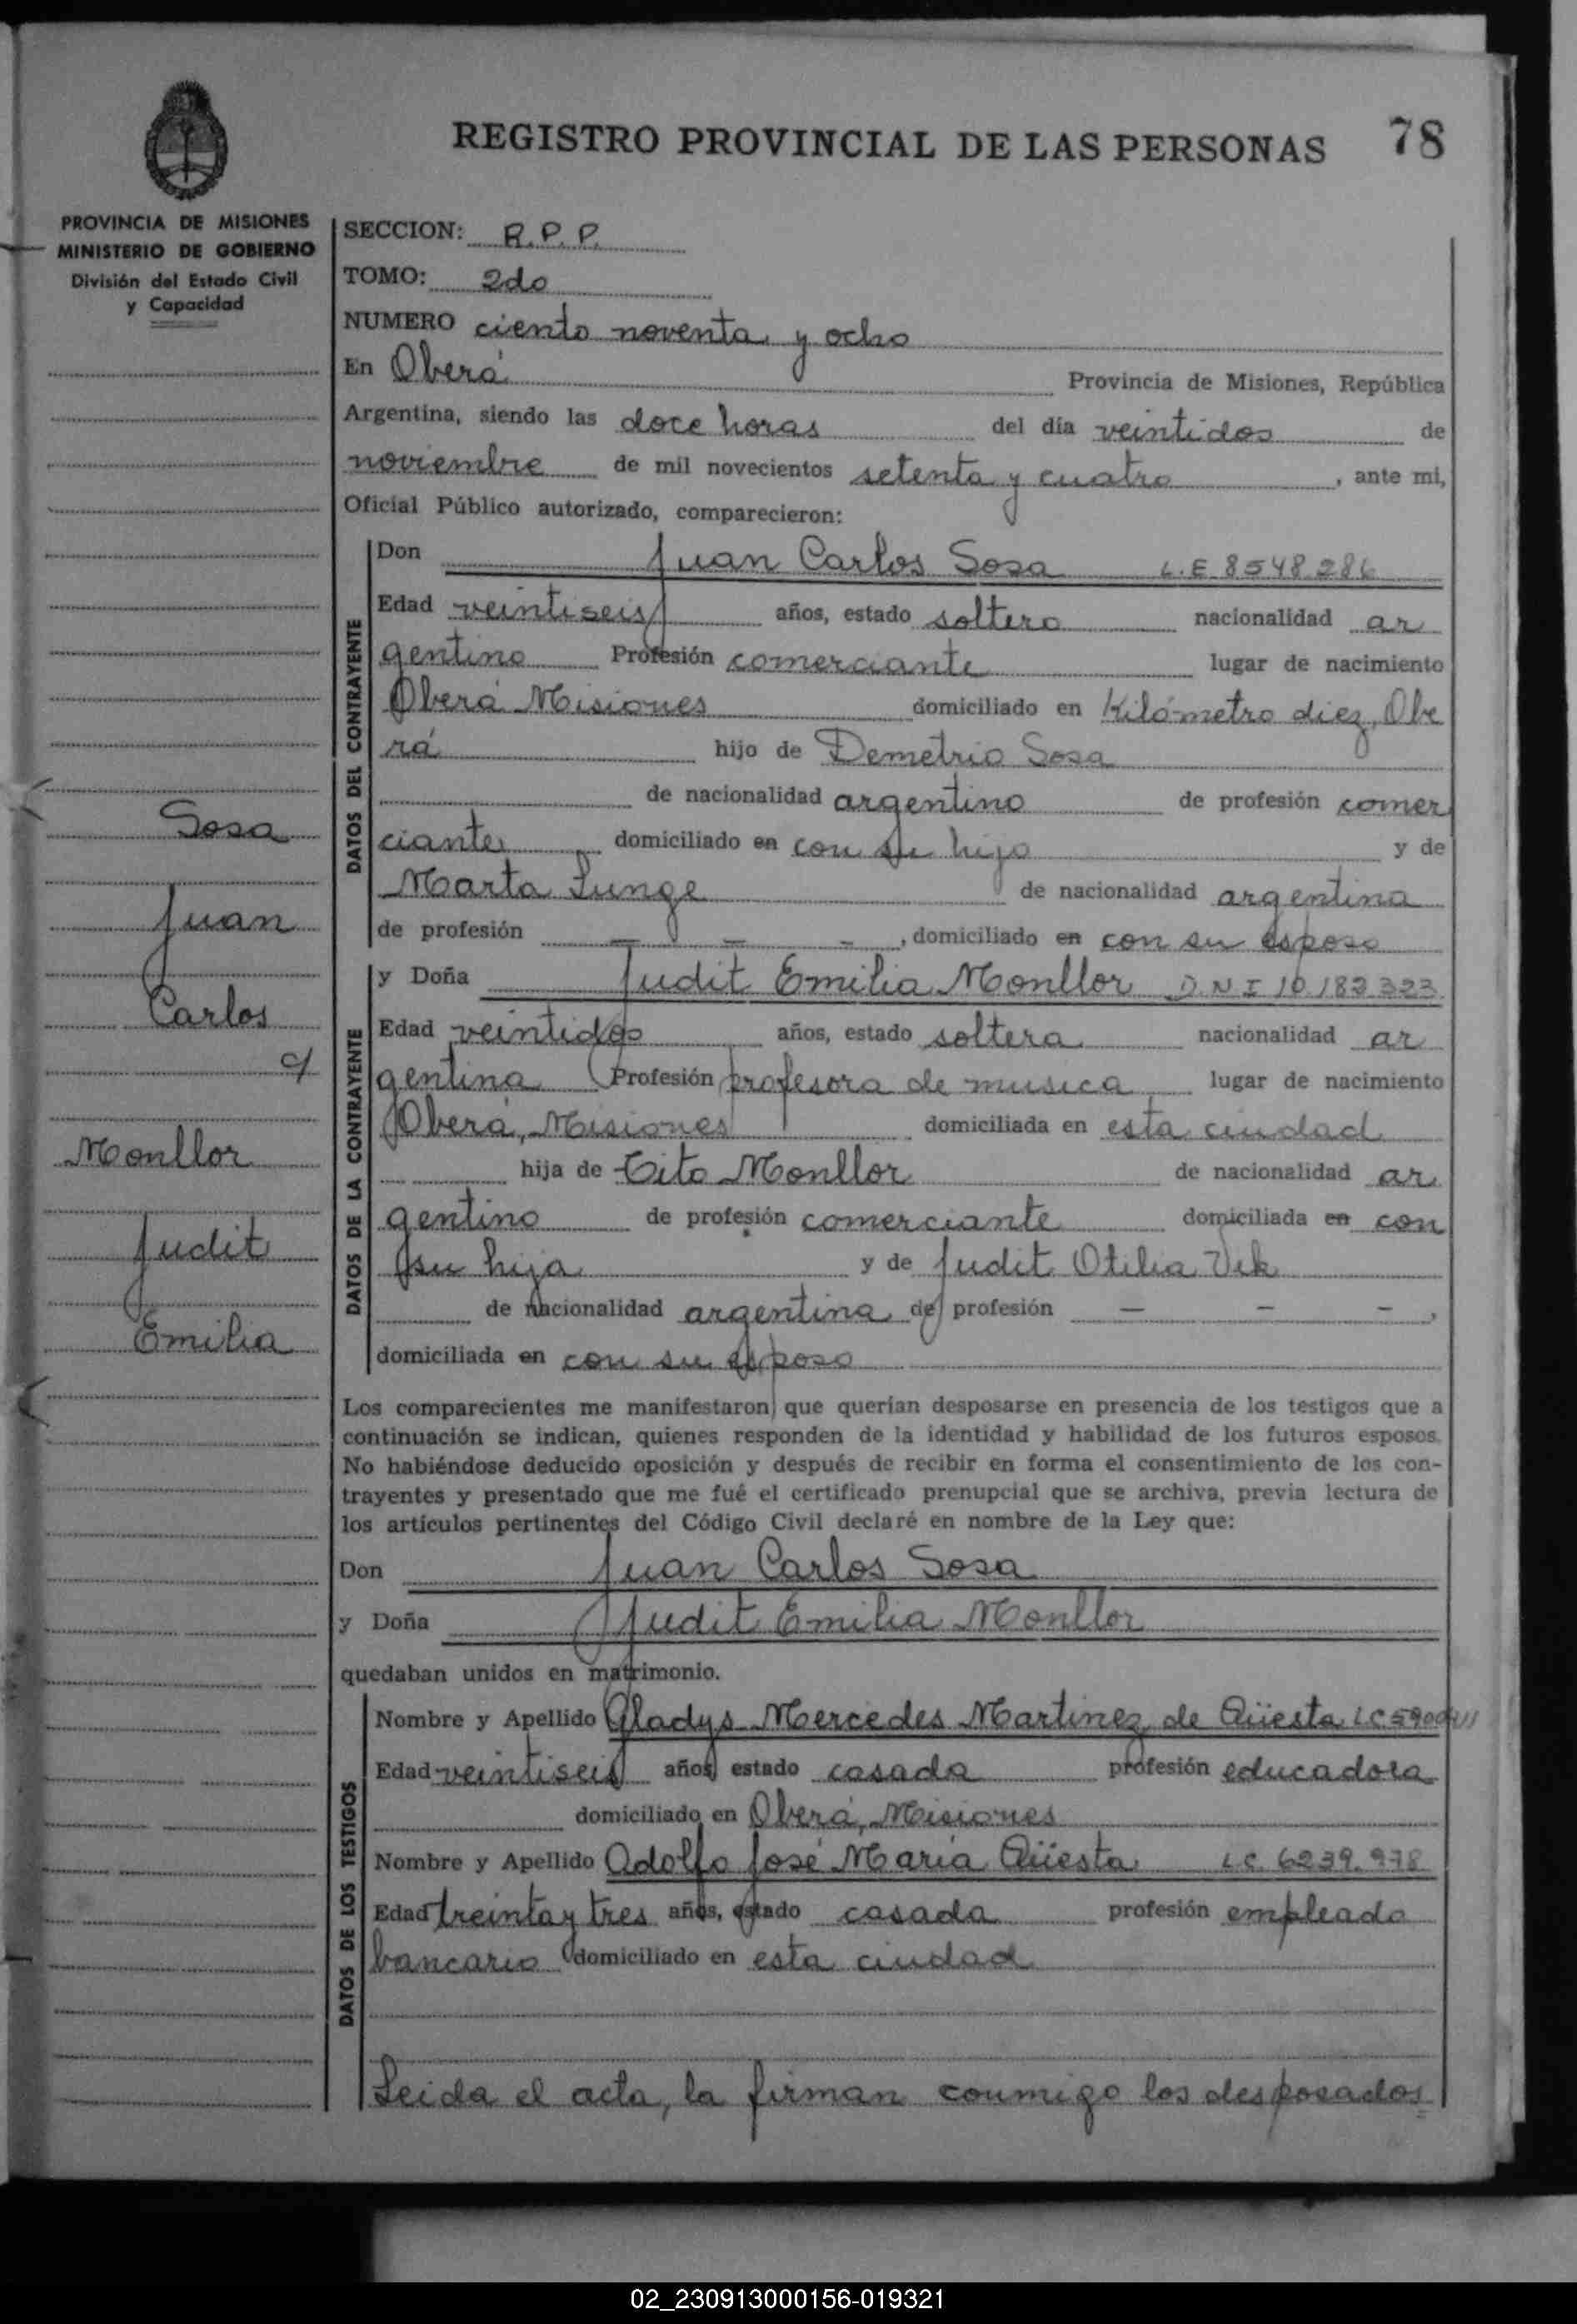 REGISTRO PROVINCIAL DE LAS PERSONAS 78
PROVINCIA DE MISIONES
MINISTERIO DE GOBIERNO
División del Estado Civil
y Capacidad
SECCION: R.P.P.
TOMO: 2do
NUMERO ciento noventa y ocho
En Oberá Provincia de Misiones, República
Argentina, siendo las doce horas del día veintidos de
noviembre de mil novecientos setenta y cuatro, ante mi,
Oficial Público autorizado, comparecieron:
DATOS DEL CONTRAYENTE
Don Juan Carlos Sosa L.E 8548.286
Edad veintiseis años, estado soltero nacionalidad ar
gentino Profesión comerciante lugar de nacimiento
Oberá Misiones domiciliado en Kilómetro diez, Obe
rá hijo de Demetrio Sosa
de nacionalidad argentino de profesión comer
ciante domiciliado en con su hijo y de
Marta Lunge de nacionalidad argentina
de profesión - - -, domiciliado en con su esposo
DATOS DE LA CONTRAYENTE
y Doña Judit Emilia Monllor D.N.I 10.182.323
Edad veintidos años, estado soltera nacionalidad ar
gentina Profesión profesora de musica lugar de nacimiento
Oberá, Misiones domiciliada en esta ciudad
hija de Tito Monllor de nacionalidad ar
gentino de profesión comerciante domiciliada en con
su hija y de Judit Otilia Vek
de nacionalidad argentina de profesión - - -,
domiciliada en con su esposo
Sosa
Juan
Carlos
c/
Monllor
Judit
Emilia
Los comparecientes me manifestaron que querían desposarse en presencia de los testigos que a
continuación se indican, quienes responden de la identidad y habilidad de los futuros esposos.
No habiéndose deducido oposición y después de recibir en forma el consentimiento de los con-
trayentes y presentado que me fué el certificado prenupcial que se archiva, previa lectura de
los artículos pertinentes del Código Civil declaré en nombre de la Ley que:
Don Juan Carlos Sosa
y Doña Judit Emilia Monllor
quedaban unidos en matrimonio.
DATOS DE LOS TESTIGOS
Nombre y Apellido Gladys Mercedes Martinez de Qüesta LC
Edad veintiseis años, estado casada profesión educadora
domiciliado en Oberá, Misiones
Nombre y Apellido Adolfo José María Qüesta L.C. 6239.978
Edad treinta y tres años, estado casada profesión empleado
bancario domiciliado en esta ciudad
Leida el acta, la firman conmigo los desposados
02_230913000156-019321